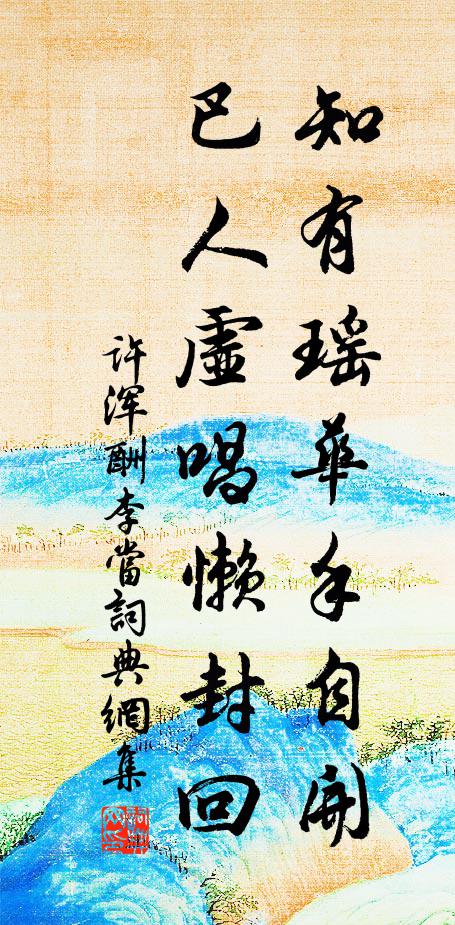 知有瑶華手自開
巴人虛唱懶封回
许浑酬李當詞典網集